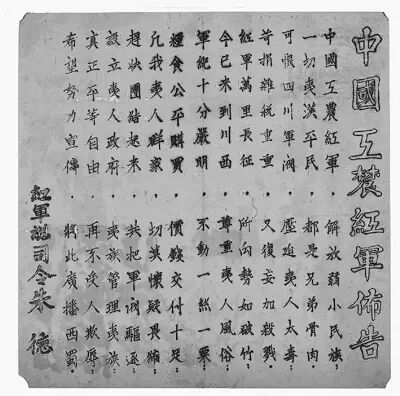 中國工農紅軍佈告
中國工農紅軍，解放弱小民族；
一切夷漢平民，都是兄弟骨肉。
可恨四川軍閥，壓迫夷人太毒；
苛捐雜稅重重，又復妄加殺戮。
紅軍萬里長征，所向勢如破竹；
今已來到川西，尊重夷人風俗。
軍紀十分嚴明，不動一絲一粟；
糧食公平購買，價錢交付十足。
凡我夷人群眾，切莫懷疑畏縮；
趕快團結起來，共把軍閥驅逐。
設立夷人政府，夷族管理夷族；
真正平等自由，再不受人欺辱。
希望努力宣傳，將此廣播西蜀。
紅軍總司令朱德